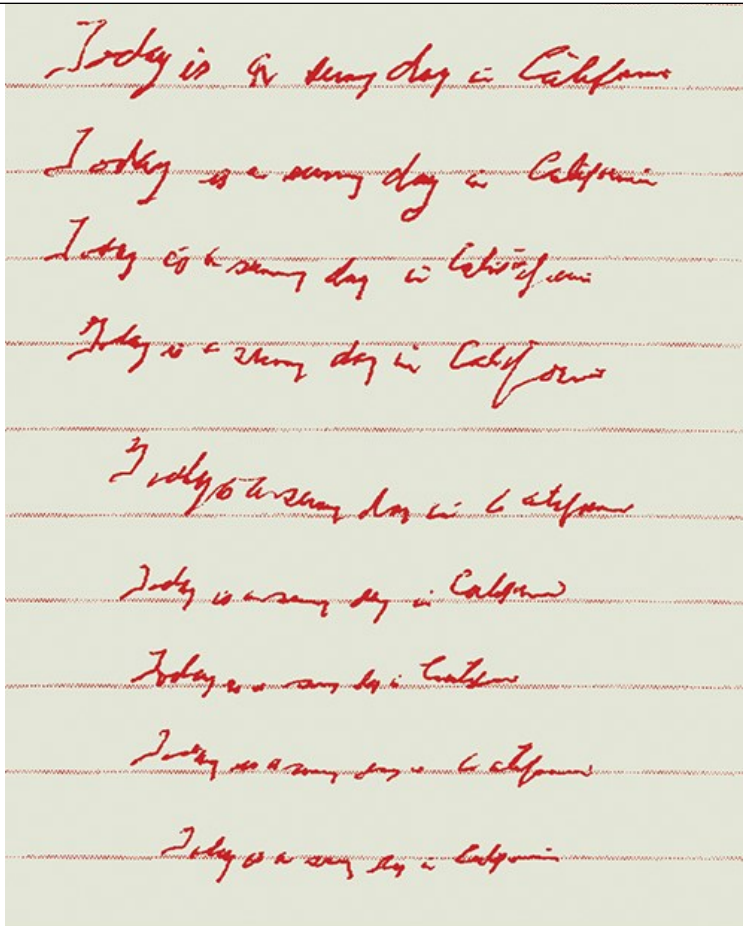 Today is a sunny day in California
Today is a sunny day in California
Today is a sunny day in California
Today is a sunny day in California
Today is a sunny day in California
Today is a sunny day in California
Today is a sunny day in California
Today is a sunny day in California
Today is a sunny day in California